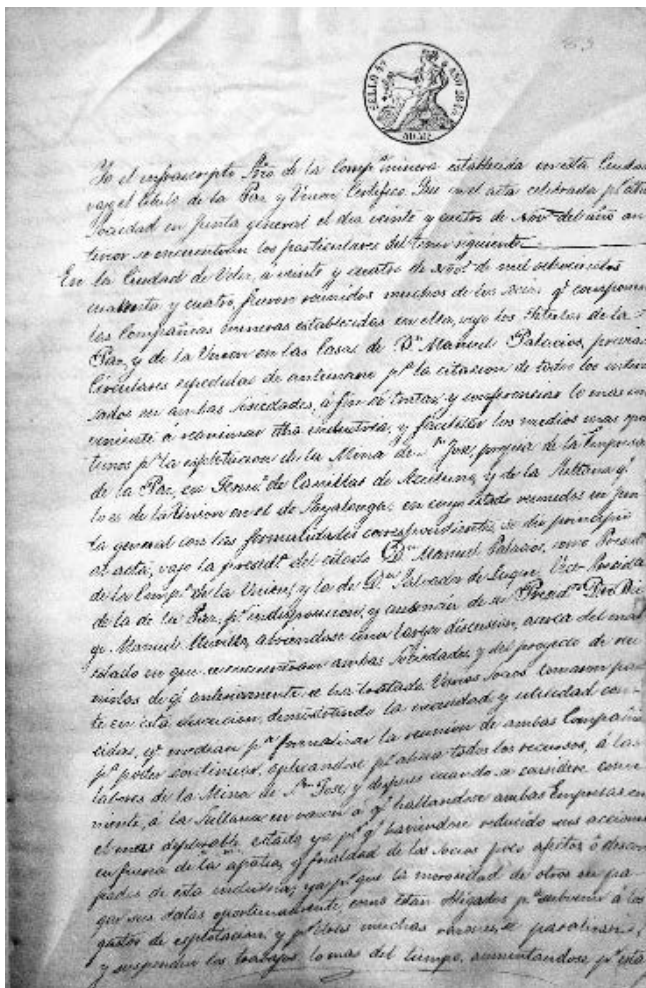 SELLO 4º AÑO 184
Yo el infrascripto Srio de la Compª minera establecida en esta Ciudad
vajo el titulo de la Paz y Union Certifico. Que en el acta celebrada pr dha
Sociedad en Junta general el dia veinte y cuatro de Novre del año an
terior se encuentran los particulares del tenor siguiente
En la Ciudad de Velez, a veinte y cuatro de Novre de mil ochocientos
cuarenta y cuatro, fueron reunidos muchos de los socios qe componen
las Compañias mineras establecidas en ella, vajo los titulos de la
Paz, y de la Union en las Casas de Dn Manuel Palacios, previas
Circulares espedidas de antemano pª la citacion de todos los intere
sados en ambas Sociedades, á fin de tratar y conferenciar lo mas con
veniente á reanimar dha industria, y facilitar los medios mas opor
tunos pª la esplotacion de la Mina de Sn Jose, propia de la Empresa
de la Paz, en Termo de Canillas de Aceituno, y de la Sultana qe
lo es de la Union en el de Sayalonga; en cuyo estado reunidos en jun
ta general con las formalidades correspondientes, se dio principio
al acta, vajo la presidª del citado Dn Manuel Palacios, como Presidte
de la Compª de la Union, y la de Dn Salvador de Luque Vice-Preside
de la de la Paz, pr indisposicion, y ausencia de su Presidte Dn Die
go Manuel abriendose una larga discusion, acerca del mal
estado en que se encuentran ambas Sociedades, y del proyecto de reu
nirlas de qe anteriormente se ha tratado. Varios Socios tomaron par
te en esta discusion, demostrando la necesidad y utilidad cono
cidas, qe median pª formalizar la reunion de ambas Compañias
pª poder continuar, aplicandose pr ahora todos los recursos, á las
labores de la Mina de Sn Jose, y despues cuando se considere conve
niente, á la Sultana en razon á qe hallandose ambas Empresas en
el mas deplorable estado, ya pr qe haviendose reducido sus acciones
en fuerza de la apatia, y frialdad de los socios poco afectos, ó descon
fiados de esta industria; ya pr que la morosidad de otros en pa
gar sus datas oportunamente, como están obligados pª subvenir á los
gastos de esplotacion, y pr otras muchas razones, se paralizaria,
y suspenden los trabajos, lo mas del tiempo, aumentandose pr esta